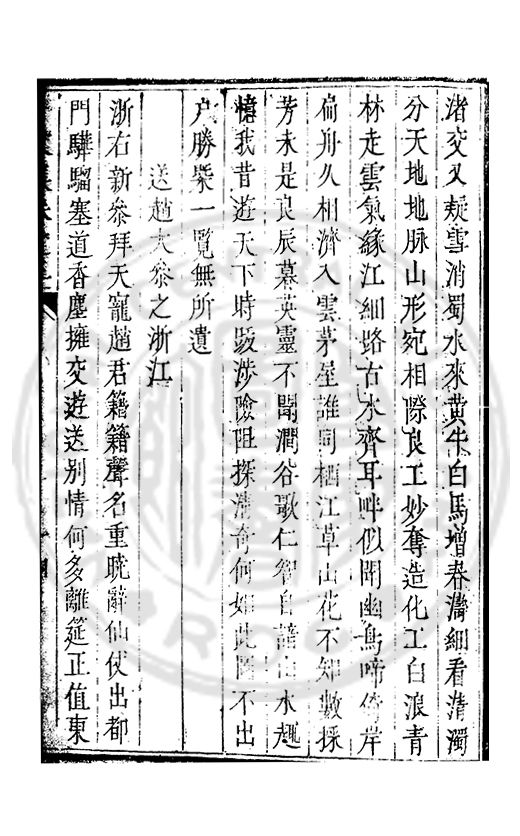 渚交又疑雪消蜀水來黃牛白馬增春濤細看清濁
分天地地脉山形宛相際良工妙奪造化工白浪青
林走雲氣緣江細路古木齊耳畔似聞幽鳥啼倚岸
扁舟久相濟入雲茅屋誰同栖江草山花不知數採
芳未是良辰暮英靈不聞澗谷歌仁智自諳山水趣
憶我昔遊天下時跋涉險阻探清奇何如此圖不出
户勝槩一覽無所遺
送趙大參之浙江
浙右新參拜天寵趙君籍籍聲名重曉辭仙仗出都
門驊騮塞道香塵擁交遊送別情何多離筵正值東